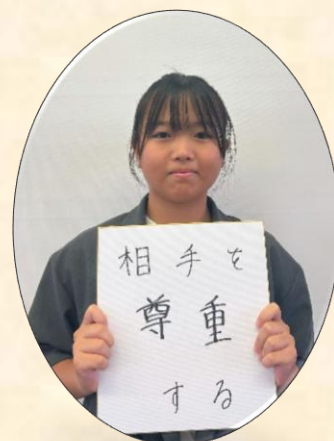 相手を
尊重
する